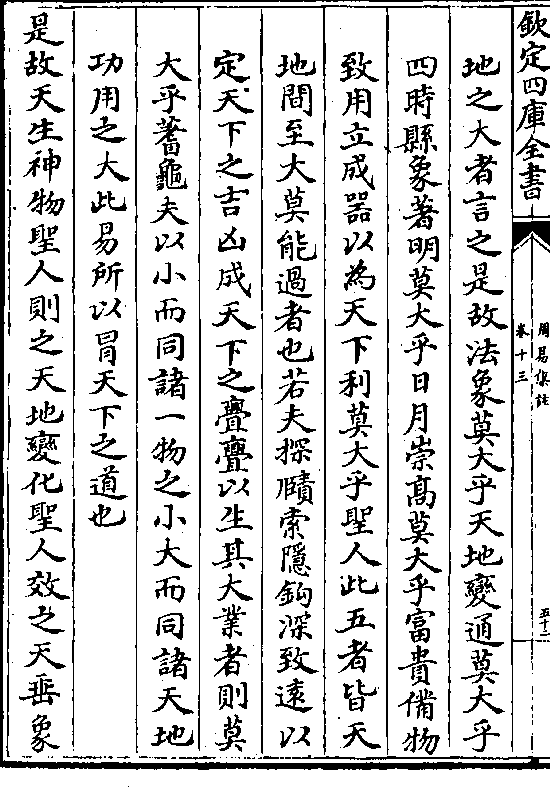 欽定四庫全書
周易集註
卷十三
五十二
地之大者言之是故法象莫大乎天地變通莫大乎
四時縣象著明莫大乎日月崇髙莫大乎富貴備物
致用立成噐以為天下利莫大乎聖人此五者皆天
地間至大莫能過者也若夫探賾索隱鈎深致逺以
定天下之吉凶成天下之亹亹以生其大業者則莫
大乎蓍龜夫以小而同諸一物之小大而同諸天地
功用之大此易所以冐天下之道也
是故天生神物聖人則之天地變化聖人效之天垂象